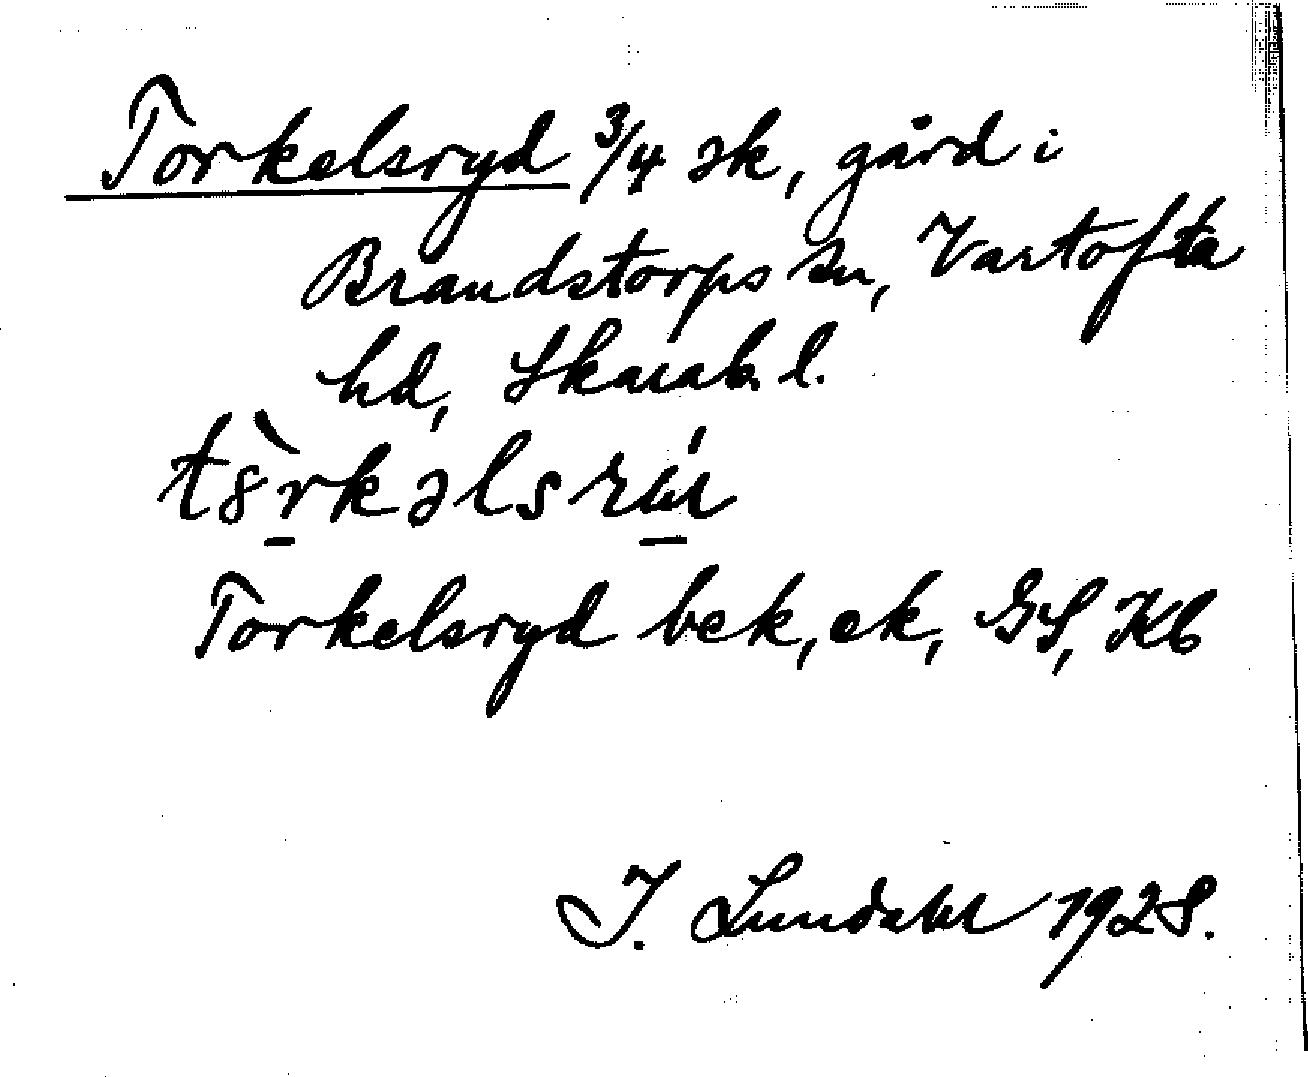 Torkelsryd 3/4 sk, gård i
Brandstorps sn, Vartofta
hd, Skarab. l.
Torkelsryd bek, ek, GS, Kb
I. Lundahl 1928.